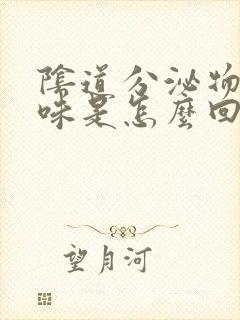 陰道分泌物
味是怎麼回
望月河